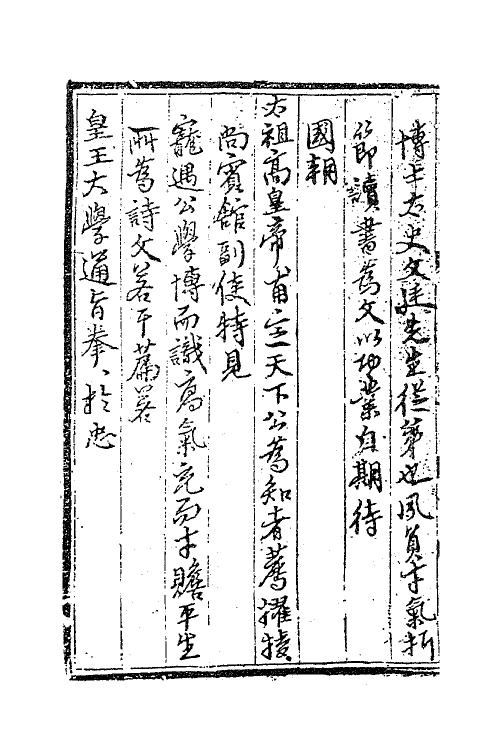 博士太史文廷先生從弟也夙負才氣折
節讀書為文以功業自期待
國朝
太祖高皇帝甫定天下公為知者薦擢授
尚賓館副使特見
寵遇公學博而識高氣充而才贍平生
所為詩文若干篇著
皇王大學通旨拳〻於忠